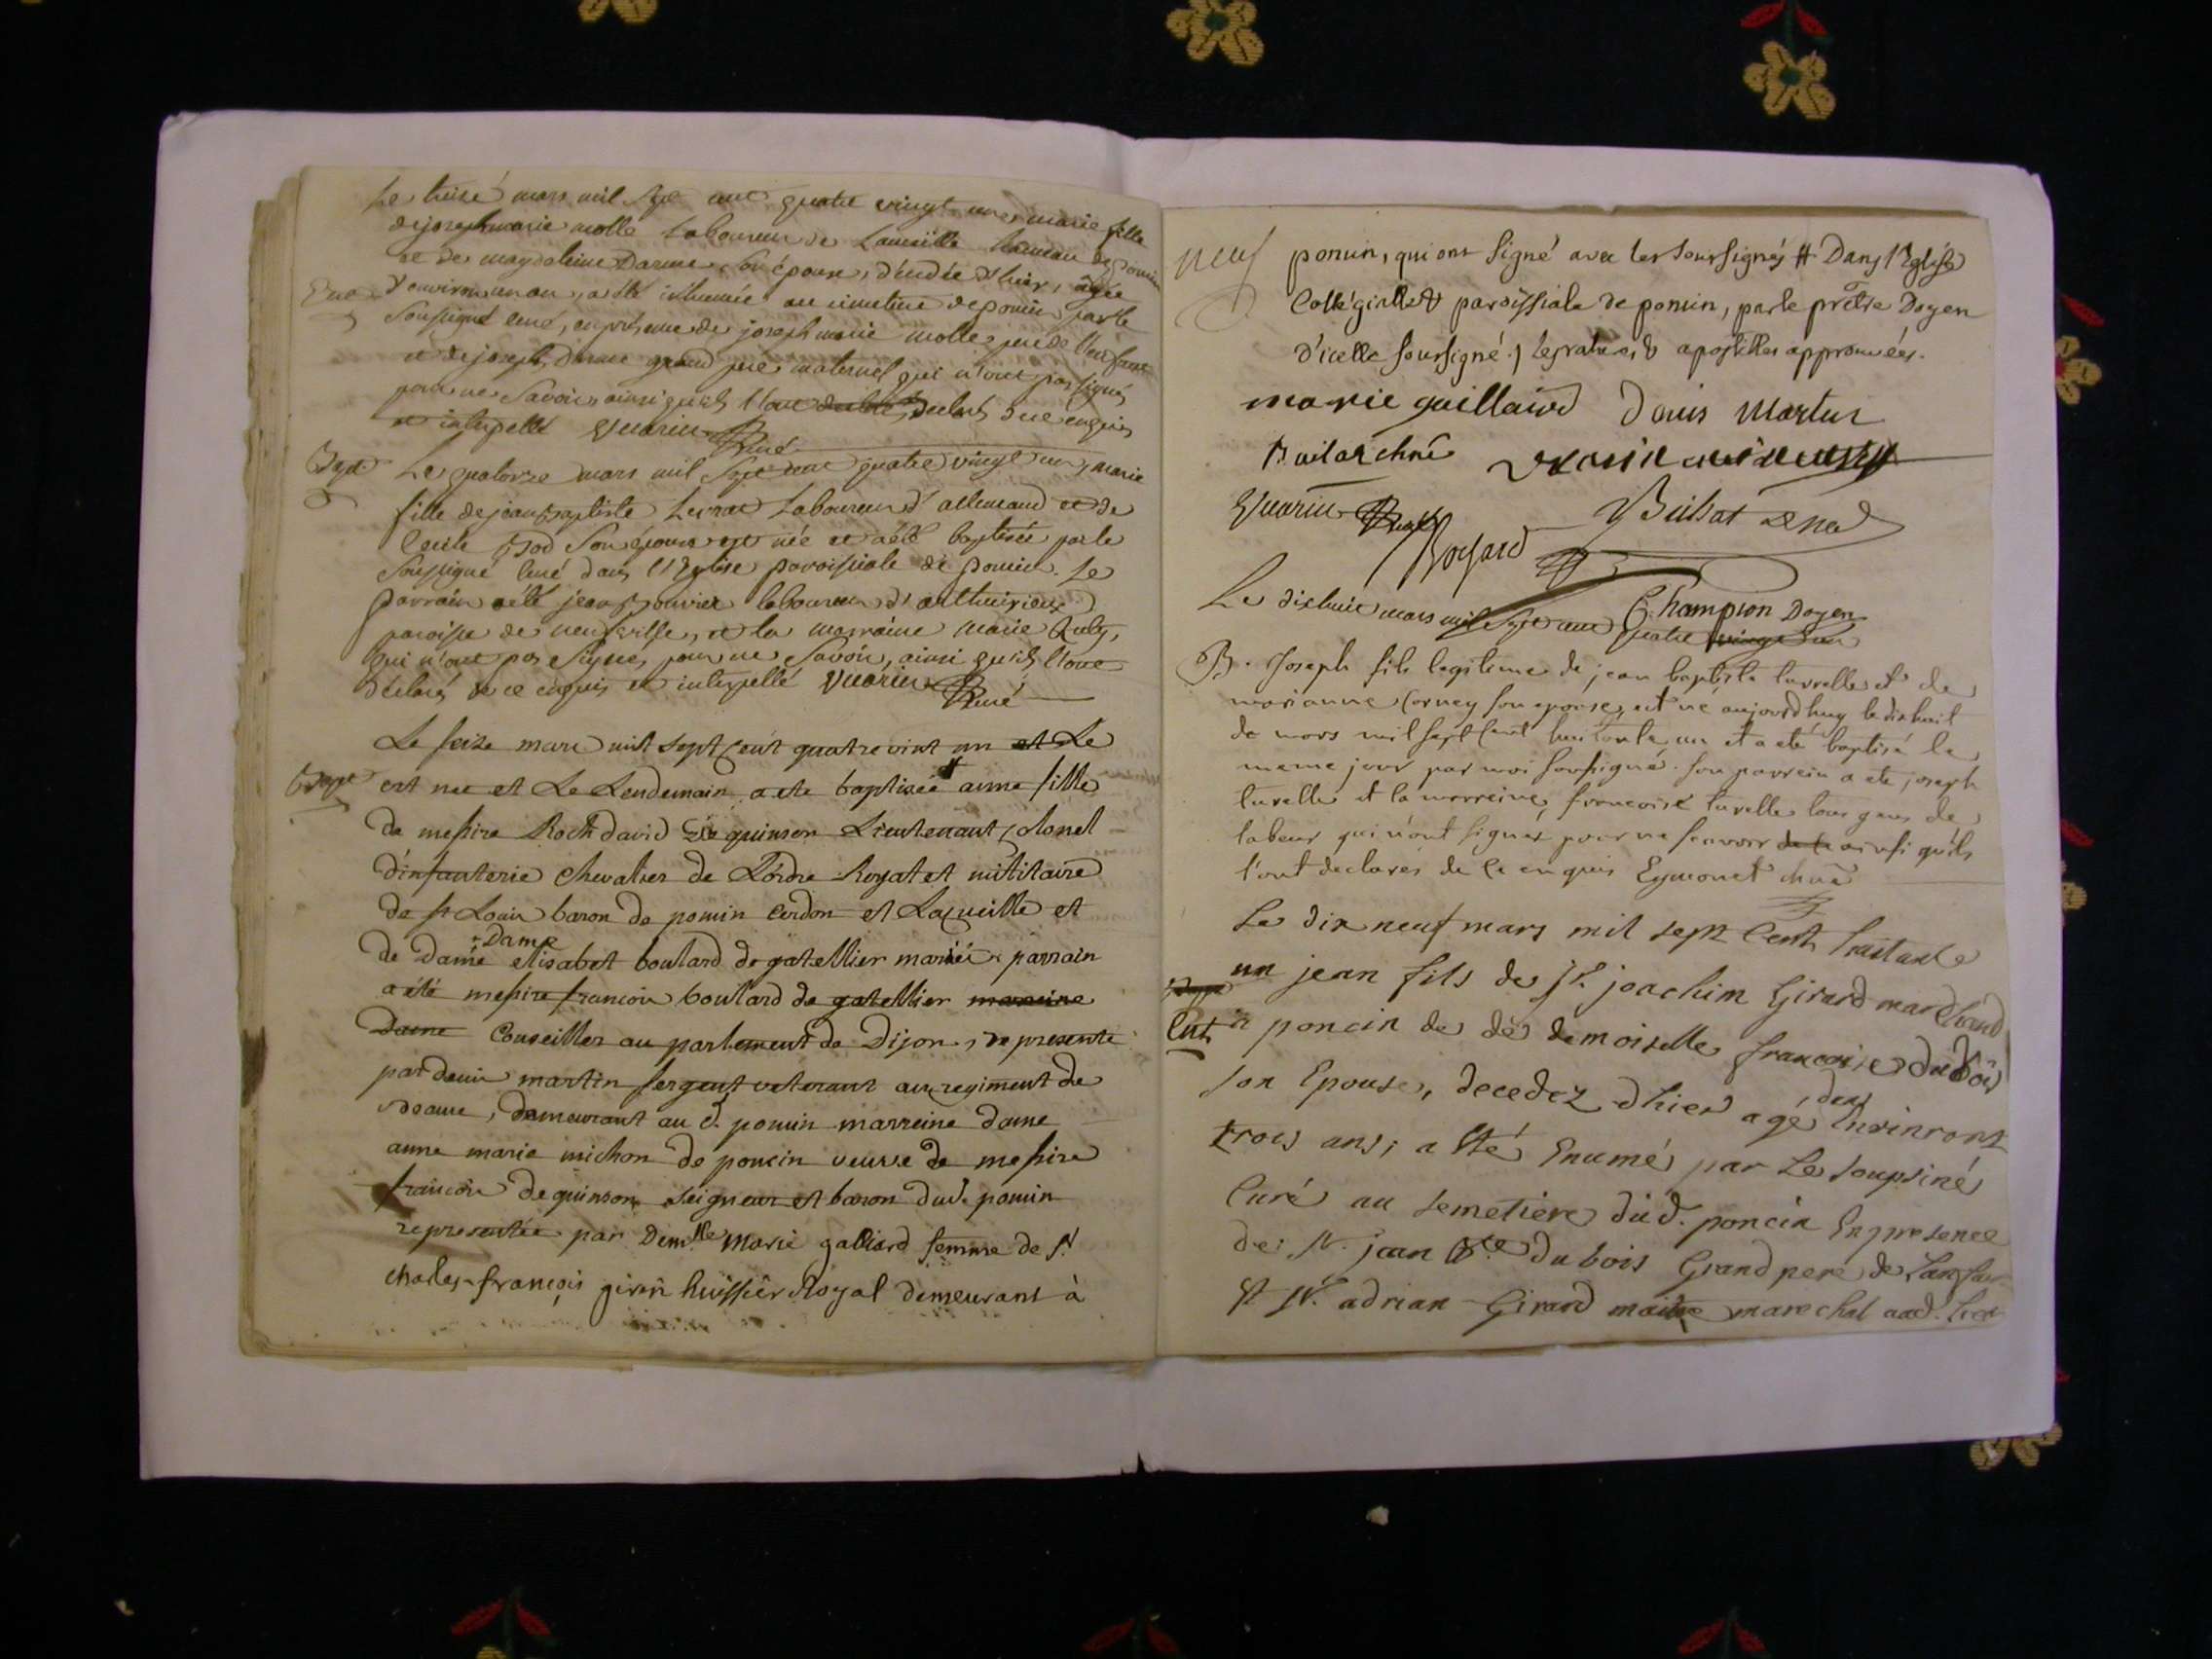 Le treize mars mil sept cent quatre vingt un, marie fille
de joseph marie molle Laboureur de Laueuille hameau de poncin
et de magdeleine Darme son épouse, décédée d'hier, agée
d'environ un an, a été inhumée au cimetière de poncin par le
soussigné curé, en présence de joseph marie molle pere de l'enfant
et de joseph Darme grand pere maternel qui n'ont pas signé
pour ne savoir, ainsi qu'ils l'ont declaré de ce enquis
et interpellé Vuarin Curé
Bapt
Le quatorze mars mil sept cent quatre vingt un, marie
fille de jean Baptiste Levrat Laboureur d'allemand et de
son épouse est née et a été baptisée par le
soussigné curé dans l'Eglise paroissiale de poncin. Le
parrain a été jean Bouvier laboureur d'
paroisse de neufville, et la marraine marie
qui n'ont pas signé, pour ne savoir, ainsi qu'ils l'ont
déclaré de ce enquis et interpellé Vuarin Curé
Le seize mars mil sept cent quatre vint un et Le
Bapt est nee et Le Lendemain a ete baptisée # anne fille
de messire Roch david De quinson Lieutenant colonel
d'infanterie chevalier de L'ordre Royal et militaire
de st Louis baron de poncin Cerdon et Lacueille et
de Dame Dame elisabet boulard de gatellier mariés parrain
a été messire francois boulard de gatellier mareine
Dame Conseiller au parlement de Dijon, represente
par denis martin sergent veterant au regiment de
, demeurant au d. poncin marreine dame
anne marie michon de poncin veuve de messire
francois de quinson seigneur et baron dud. poncin
representée par Demlle Marie galliard femme de sr
charles-françois girin huissier Royal demeurant à
neuf poncin, qui ont signé avec les soussignés # Dans l'Eglise
Collégialle & paroissiale de poncin, par le prêtre Doyen
d'icelle soussigné.) les ratures & apostilles approuvées.
marie gaillaird Denis Martin
Vuarin Curé
Champion Doyen
Le dixhuit mars mil sept cent quatre vingt un
B. Joseph fils legitime de jean baptiste turrelle et de
marianne Corney son epouse, est né aujourdhuy le dixhuit
de mars mil sept cent huitante un et a eté baptisé le
meme jour par moi soussigné. son parrein a ete joseph
turelle et la marreine, francoise turelle tous gens de
labeur qui n'ont signer pour ne scavoir de ce ainsi qu'ils
l'ont declarés de ce enquis Eymonet
Le dix neuf mars mil sept Cent huitante
un jean fils de sr. joachim Girard marchand
Ent. à poncin de de demoiselle francoise du bois
son Epouse, decedez d'hier agé den Environt
trois ans; a Eté Enumé par Le soupsiné
Curé au semetiere dud. poncin En presence
de sr. jean Bte. du bois Grand pere de Lanfan
Et sr. adrian Girard maitre marechal aud. lieu